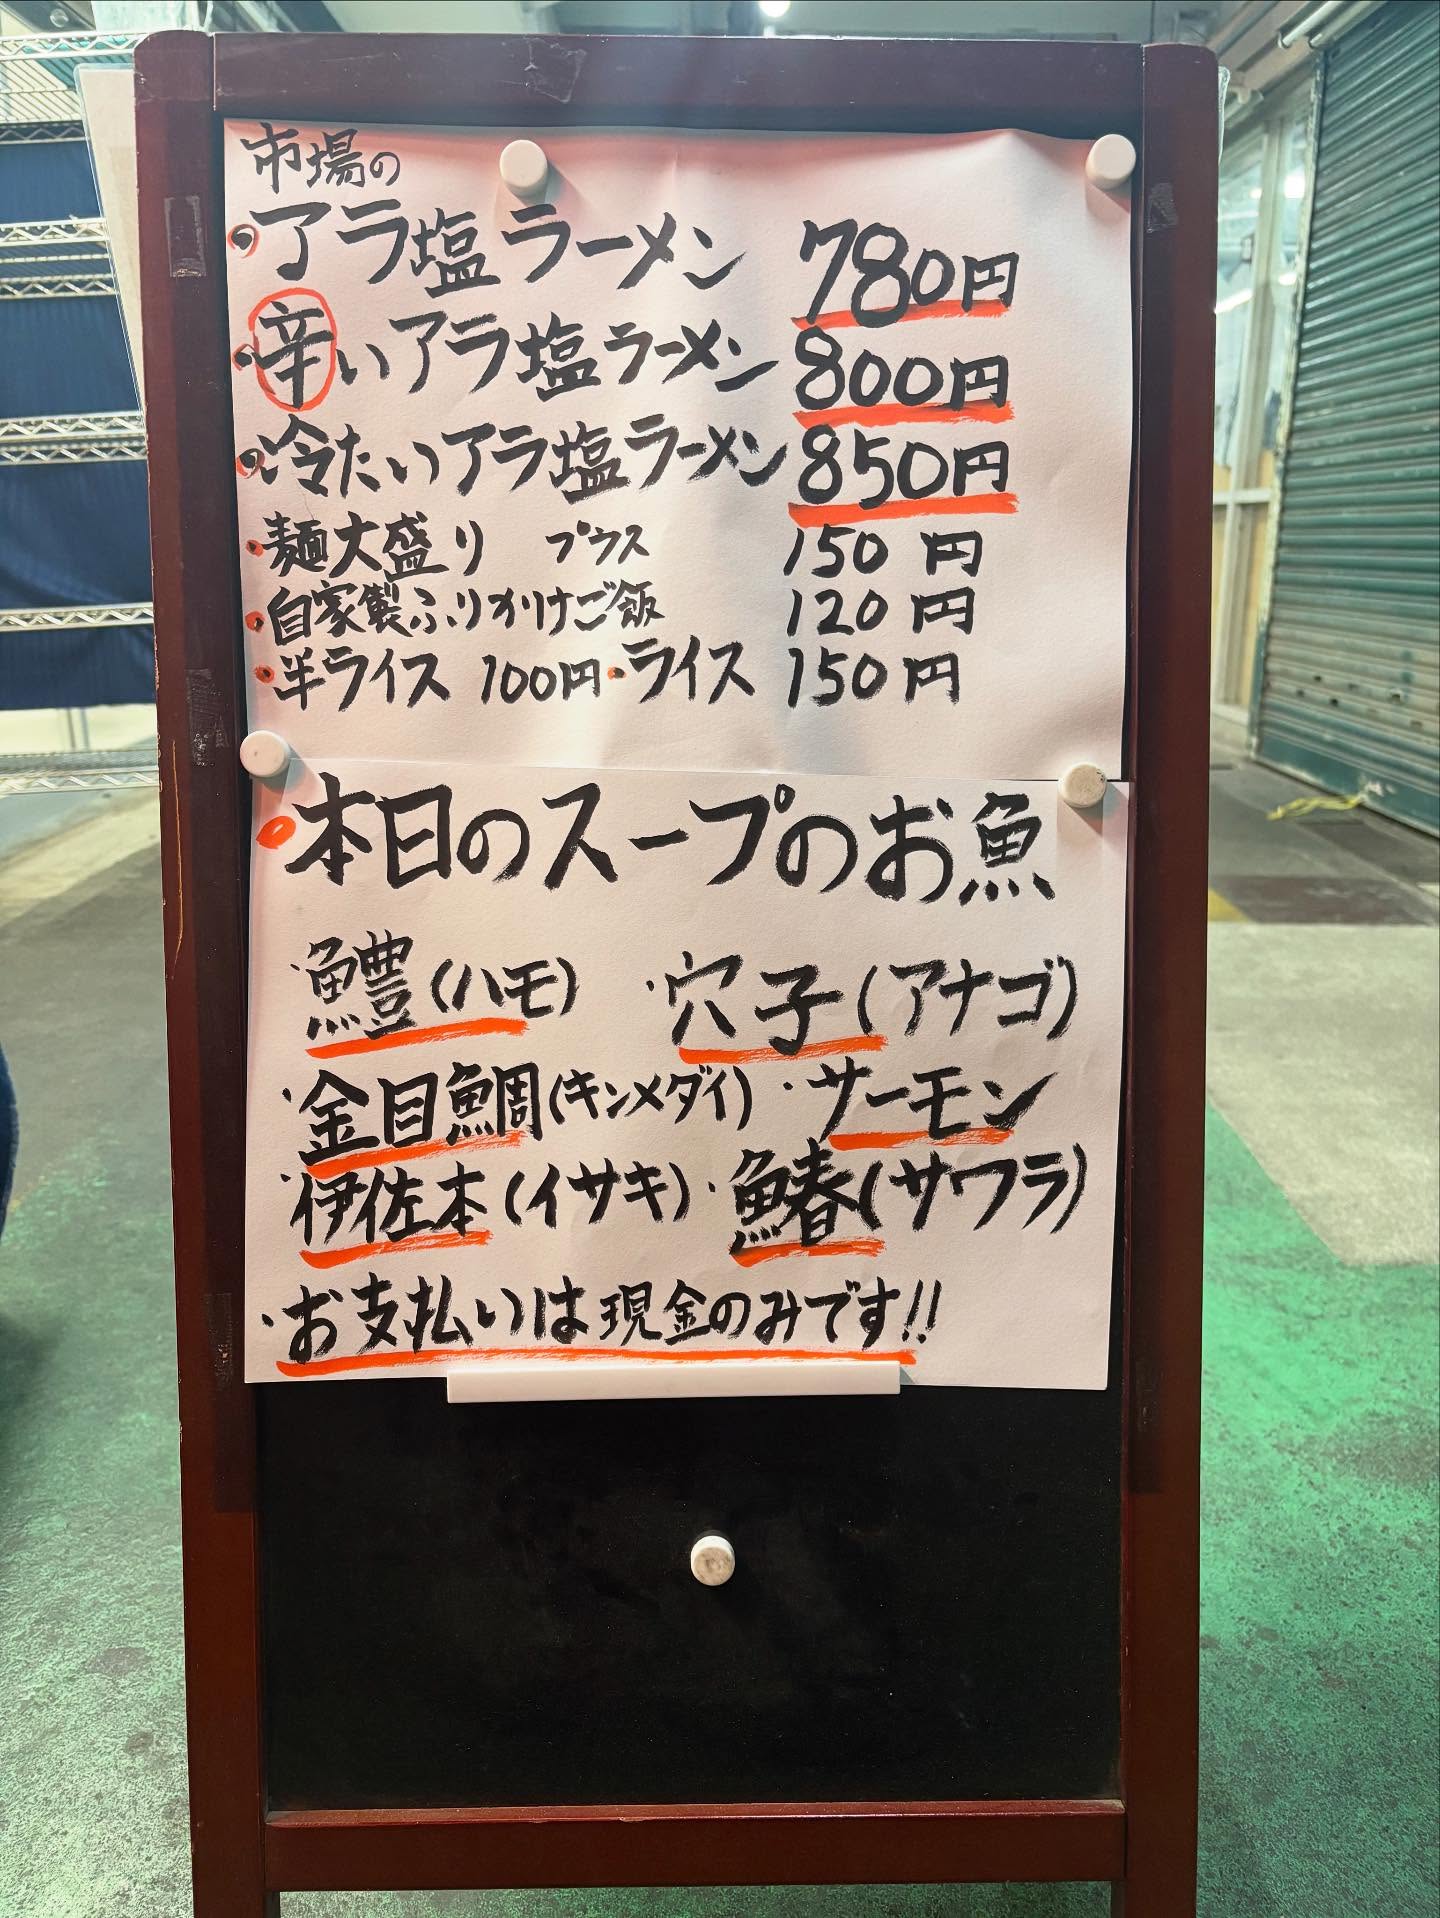 市場の
・アラ塩ラーメン 780円
・辛いアラ塩ラーメン 800円
・冷たいアラ塩ラーメン 850円
・麺大盛り プラス 150円
・自家製ふりかけご飯 120円
・半ライス 100円・ライス 150円
・本日のスープのお魚
・鱧(ハモ) ・穴子(アナゴ)
・金目鯛(キンメダイ)・サーモン
・伊佐木(イサキ)・鰆(サワラ)
・お支払いは現金のみです!!